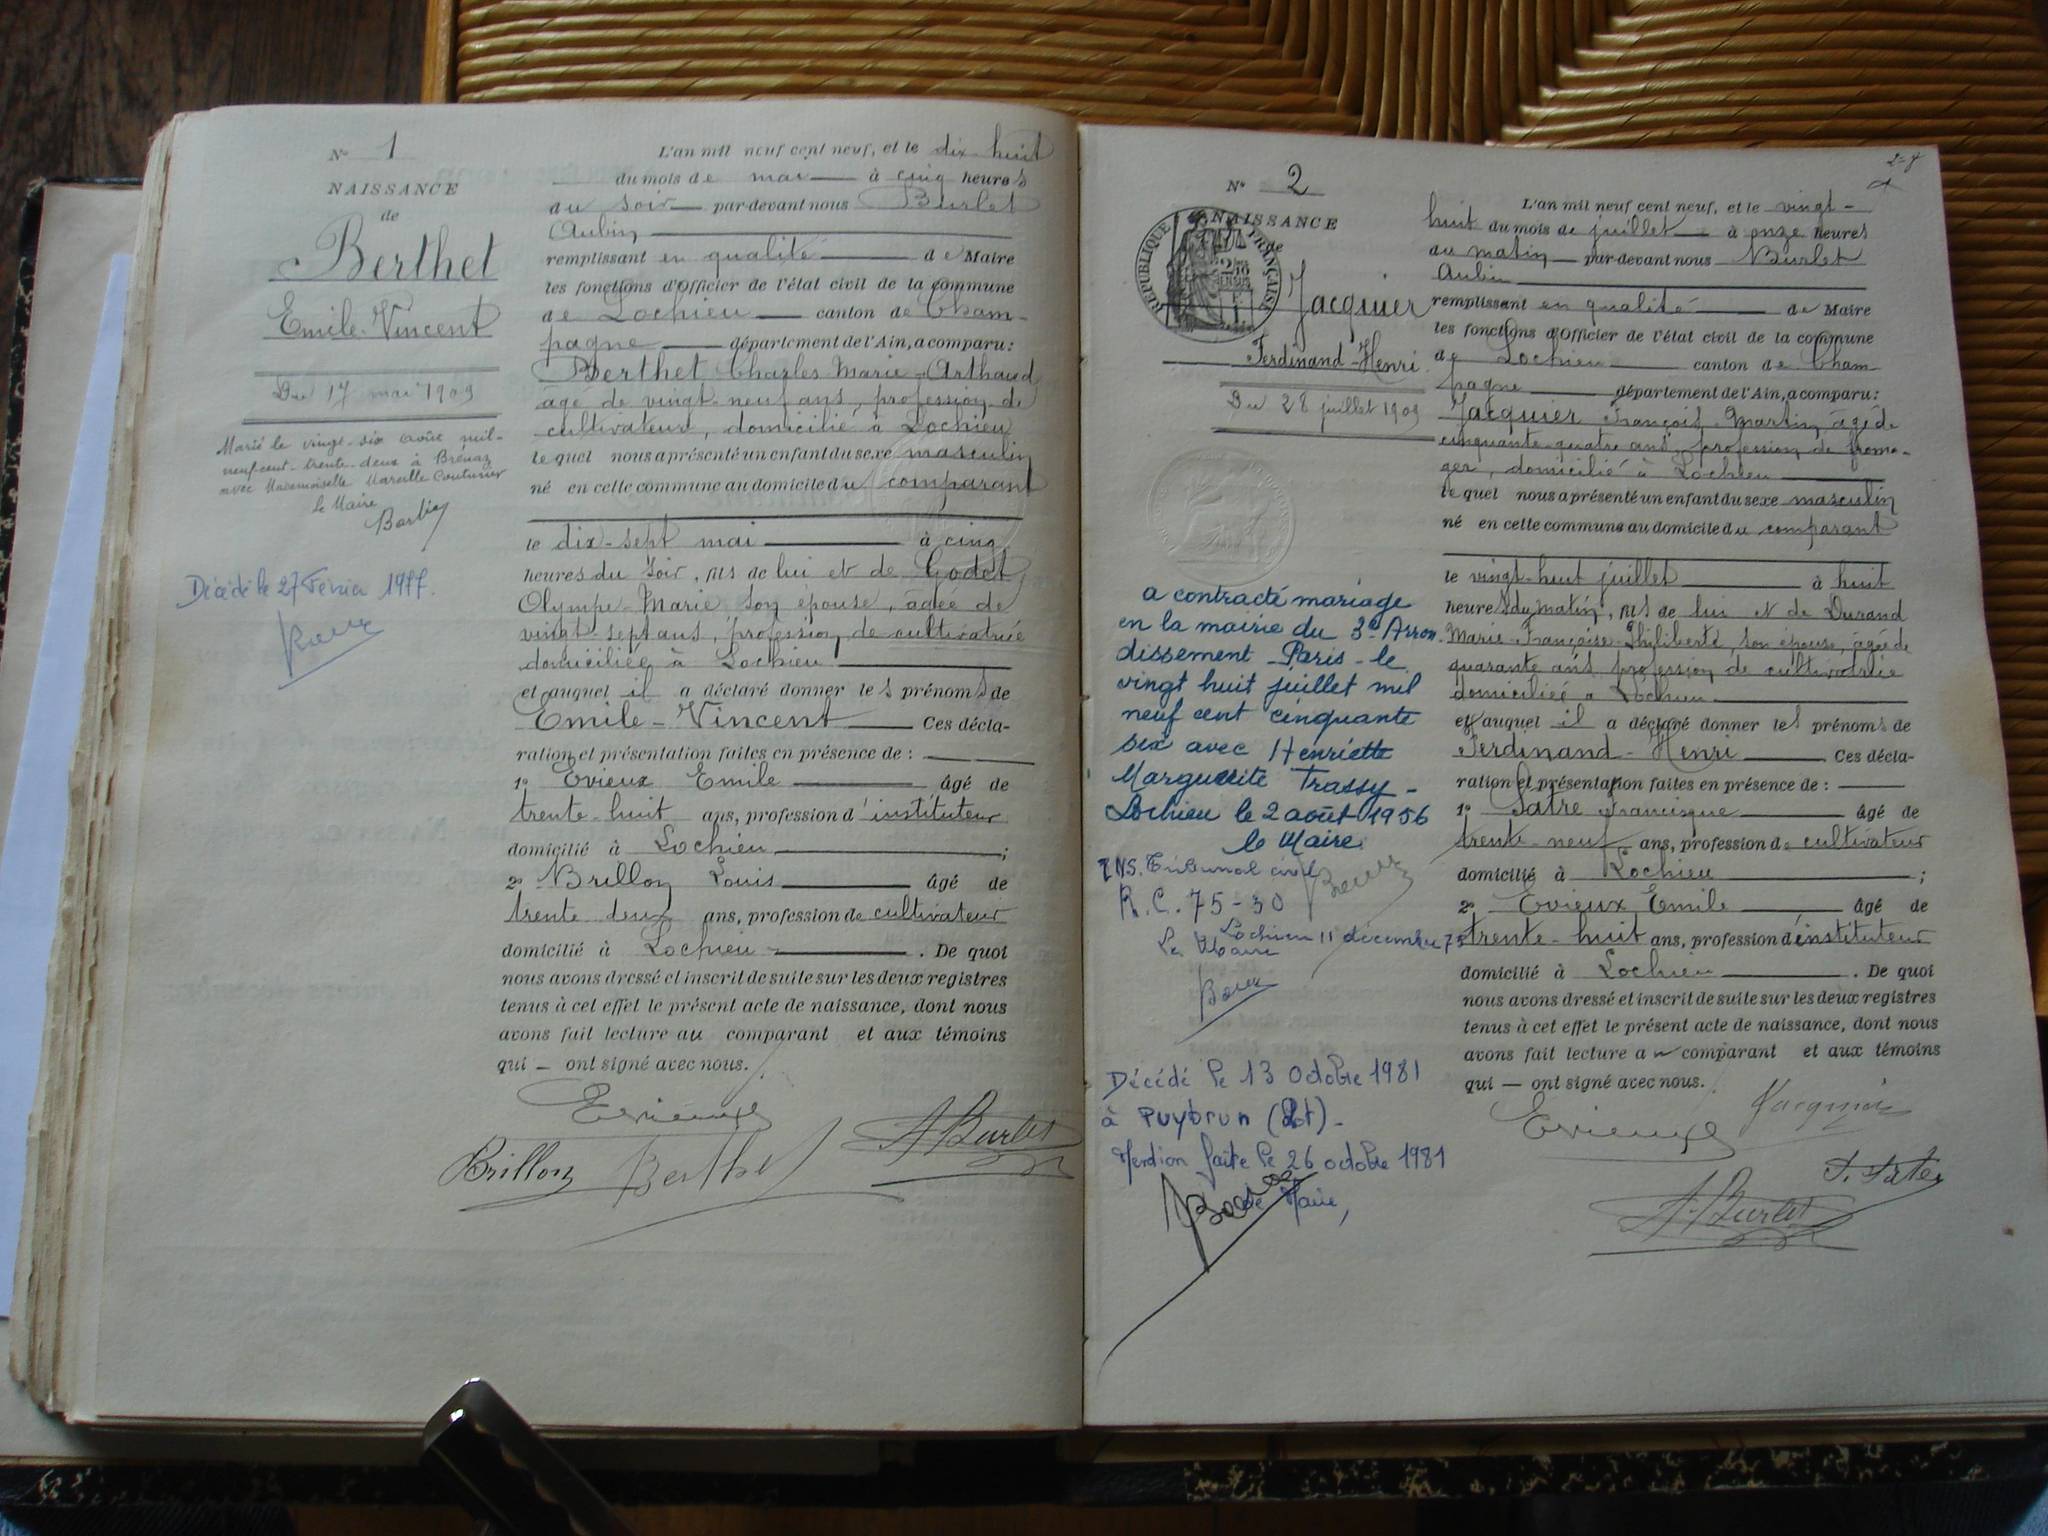 N° 1
NAISSANCE
de
Berthet
Emile-Vincent
Du 17 mai 1909
Marié le vingt-six août mil-
neuf-cent-trente-deux à Brénaz
avec Mademoiselle Marcelle Couturier
le Maire
Décédé le 27 Février 1977.
L'an mil neuf cent neuf, et le dix-huit
du mois de mai à cinq heures
du soir par-devant nous Burlet
Aubin
remplissant en qualité de Maire
les fonctions d'Officier de l'état civil de la commune
de Lochieu canton de Cham-
pagne département de l'Ain, a comparu :
Berthet Charles Marie-Arthaud
âgé de vingt-neuf ans, profession de
cultivateur, domicilié à Lochieu
lequel nous a présenté un enfant du sexe masculin
né en cette commune au domicile du comparant
le dix-sept mai à cinq
heures du soir, fils de lui et de Godet
Olympe-Marie son épouse, âgée de
vingt-sept ans, profession de cultivatrice
domiciliée à Lochieu
et auquel il a déclaré donner les prénoms de
Emile-Vincent Ces décla-
ration et présentation faites en présence de :
1° Evieux Emile âgé de
trente-huit ans, profession d'instituteur
domicilié à Lochieu ;
2° Brillon Louis âgé de
trente deux ans, profession de cultivateur
domicilié à Lochieu . De quoi
nous avons dressé et inscrit de suite sur les deux registres
tenus à cet effet le présent acte de naissance, dont nous
avons fait lecture au comparant et aux témoins
qui — ont signé avec nous.
Evieux
Brillon Berthet A. Burlet
N° 2
NAISSANCE
de
RÉPUBLIQUE FRANÇAISE
Jacquier
Ferdinand-Henri
Du 28 juillet 1909
a contracté mariage
en la mairie du 3e Arron-
dissement Paris le
vingt huit juillet mil
neuf cent cinquante
six avec Henriette
Marguerite Trassy -
Lochieu le 2 août 1956
le Maire
Tribunal civil
R.C. 75-30
Lochieu 11 décembre 75
Le Maire
Décédé le 13 Octobre 1981
à Puybrun (Lot) -
Mention faite le 26 octobre 1981
Le Maire,
L'an mil neuf cent neuf, et le vingt-
huit du mois de juillet à onze heures
du matin par-devant nous Burlet
Aubin
remplissant en qualité de Maire
les fonctions d'Officier de l'état civil de la commune
de Lochieu canton de Cham-
pagne département de l'Ain, a comparu :
Jacquier François-Martin âgé de
cinquante-quatre ans, profession de froma-
ger, domicilié à Lochieu
lequel nous a présenté un enfant du sexe masculin
né en cette commune au domicile du comparant
le vingt-huit juillet à huit
heures du matin, fils de lui et de Durand
Marie-Françoise-Philiberte, son épouse, âgée de
quarante ans profession de cultivatrice
domiciliée à Lochieu
et auquel il a déclaré donner les prénoms de
Ferdinand-Henri Ces décla-
ration et présentation faites en présence de :
1° Satre Francisque âgé de
trente-neuf ans, profession de cultivateur
domicilié à Lochieu ;
2° Evieux Emile âgé de
trente-huit ans, profession d'instituteur
domicilié à Lochieu . De quoi
nous avons dressé et inscrit de suite sur les deux registres
tenus à cet effet le présent acte de naissance, dont nous
avons fait lecture au comparant et aux témoins
qui — ont signé avec nous.
Evieux Jacquier
A. Burlet